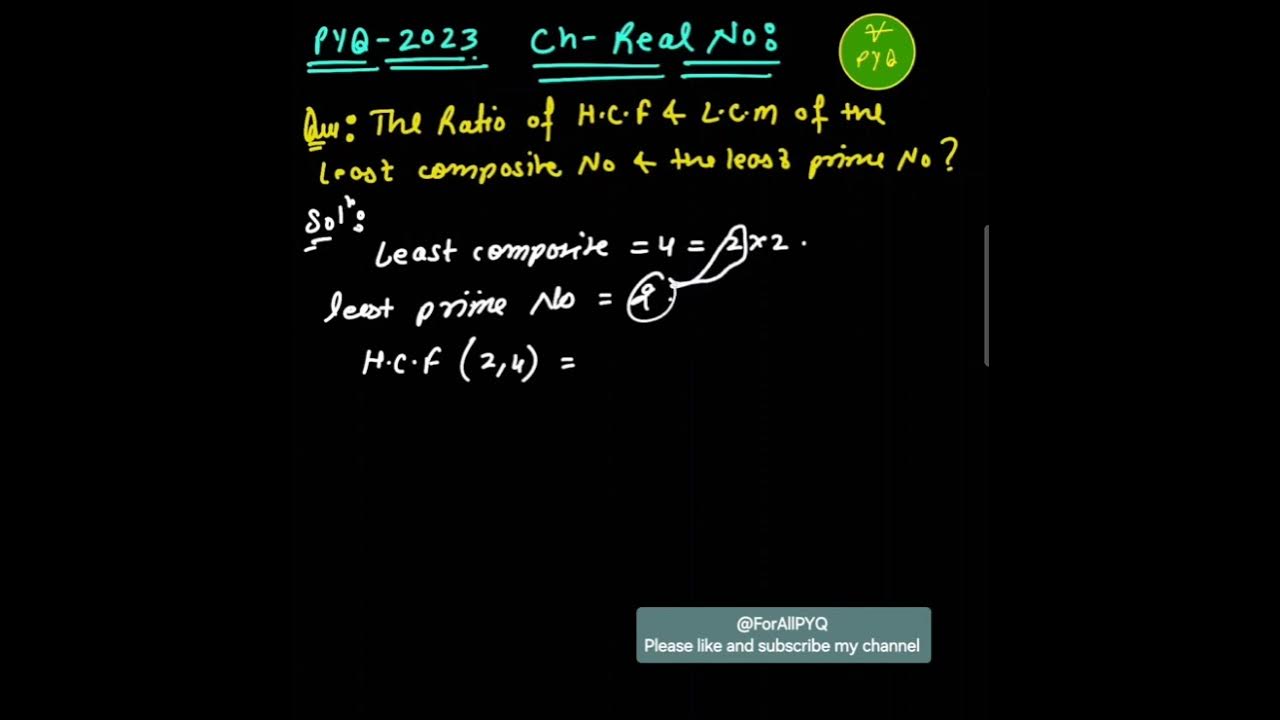 PYQ-2023 Ch- Real No:
PYQ
Que: The Ratio of H.C.F & L.C.M of the
least composite No & the least prime No?
Solⁿ:
Least composite = 4 = 2×2.
least prime No = 2
H.C.F (2,4) =
@ForAllPYQ
Please like and subscribe my channel